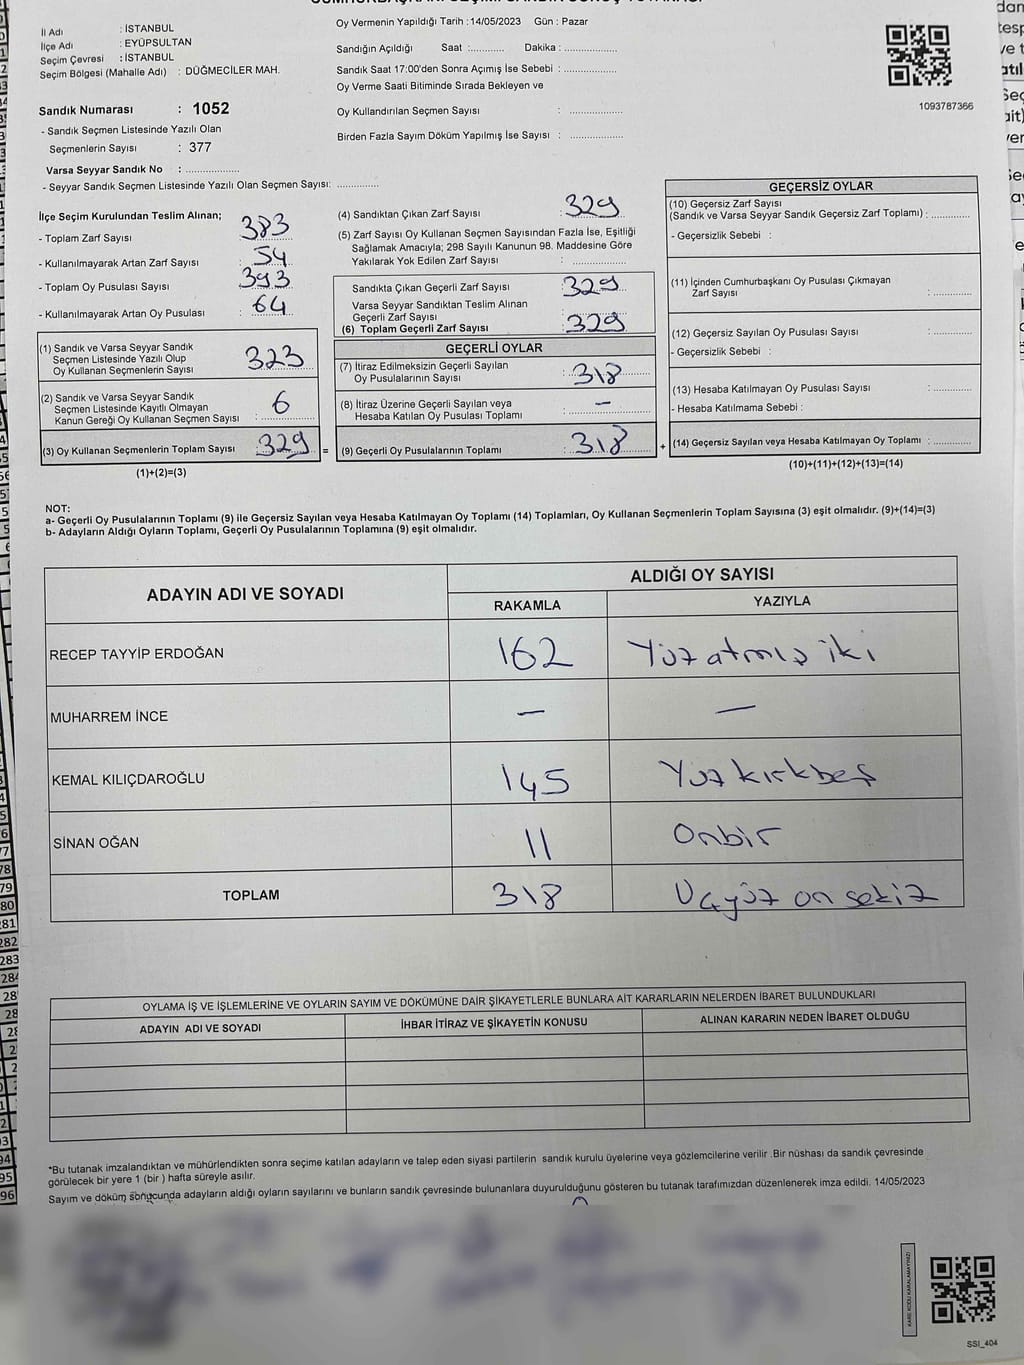 İl Adı : İSTANBUL
İlçe Adı : EYÜPSULTAN
Seçim Çevresi : İSTANBUL
Seçim Bölgesi (Mahalle Adı) : DÜĞMECİLER MAH.
Sandık Numarası : 1052
- Sandık Seçmen Listesinde Yazılı Olan
Seçmenlerin Sayısı : 377
Varsa Seyyar Sandık No : ..................
- Seyyar Sandık Seçmen Listesinde Yazılı Olan Seçmen Sayısı: ..............
Oy Vermenin Yapıldığı Tarih :14/05/2023 Gün : Pazar
Sandığın Açıldığı Saat :........... Dakika : .................
Sandık Saat 17:00'den Sonra Açımış İse Sebebi : .................
Oy Verme Saati Bitiminde Sırada Bekleyen ve
Oy Kullandırılan Seçmen Sayısı : .................
Birden Fazla Sayım Döküm Yapılmış İse Sayısı : .................
1093787366
İlçe Seçim Kurulundan Teslim Alınan;
- Toplam Zarf Sayısı : 383
- Kullanılmayarak Artan Zarf Sayısı : 54
- Toplam Oy Pusulası Sayısı : 393
- Kullanılmayarak Artan Oy Pusulası : 64
(1) Sandık ve Varsa Seyyar Sandık
Seçmen Listesinde Yazılı Olup
Oy Kullanan Seçmenlerin Sayısı 323
(2) Sandık ve Varsa Seyyar Sandık
Seçmen Listesinde Kayıtlı Olmayan
Kanun Gereği Oy Kullanan Seçmen Sayısı : 6
(3) Oy Kullanan Seçmenlerin Toplam Sayısı 329 =
(1)+(2)=(3)
(4) Sandıktan Çıkan Zarf Sayısı : 329
(5) Zarf Sayısı Oy Kullanan Seçmen Sayısından Fazla İse, Eşitliği
Sağlamak Amacıyla; 298 Sayılı Kanunun 98. Maddesine Göre
Yakılarak Yok Edilen Zarf Sayısı : .................
Sandıkta Çıkan Geçerli Zarf Sayısı : 329
Varsa Seyyar Sandıktan Teslim Alınan
Geçerli Zarf Sayısı :
(6) Toplam Geçerli Zarf Sayısı : 329
GEÇERLİ OYLAR
(7) İtiraz Edilmeksizin Geçerli Sayılan
Oy Pusulalarının Sayısı : 318
(8) İtiraz Üzerine Geçerli Sayılan veya
Hesaba Katılan Oy Pusulası Toplamı : —
(9) Geçerli Oy Pusulalarının Toplamı : 318 +
GEÇERSİZ OYLAR
(10) Geçersiz Zarf Sayısı
(Sandık ve Varsa Seyyar Sandık Geçersiz Zarf Toplamı) : ............
- Geçersizlik Sebebi :
(11) İçinden Cumhurbaşkanı Oy Pusulası Çıkmayan
Zarf Sayısı : ............
(12) Geçersiz Sayılan Oy Pusulası Sayısı : ............
- Geçersizlik Sebebi :
(13) Hesaba Katılmayan Oy Pusulası Sayısı : ............
- Hesaba Katılmama Sebebi :
(14) Geçersiz Sayılan veya Hesaba Katılmayan Oy Toplamı : ............
(10)+(11)+(12)+(13)=(14)
NOT:
a- Geçerli Oy Pusulalarının Toplamı (9) ile Geçersiz Sayılan veya Hesaba Katılmayan Oy Toplamı (14) Toplamları, Oy Kullanan Seçmenlerin Toplam Sayısına (3) eşit olmalıdır. (9)+(14)=(3)
b- Adayların Aldığı Oyların Toplamı, Geçerli Oy Pusulalarının Toplamına (9) eşit olmalıdır.
ADAYIN ADI VE SOYADI ALDIĞI OY SAYISI
RAKAMLA YAZIYLA
RECEP TAYYİP ERDOĞAN 162 Yüz atmış iki
MUHARREM İNCE — —
KEMAL KILIÇDAROĞLU 145 Yüzkırkbeş
SİNAN OĞAN 11 Onbir
TOPLAM 318 Üçyüz on sekiz
OYLAMA İŞ VE İŞLEMLERİNE VE OYLARIN SAYIM VE DÖKÜMÜNE DAİR ŞİKAYETLERLE BUNLARA AİT KARARLARIN NELERDEN İBARET BULUNDUKLARI
ADAYIN ADI VE SOYADI İHBAR İTİRAZ VE ŞİKAYETİN KONUSU ALINAN KARARIN NEDEN İBARET OLDUĞU
*Bu tutanak imzalandıktan ve mühürlendikten sonra seçime katılan adayların ve talep eden siyasi partilerin sandık kurulu üyelerine veya gözlemcilerine verilir .Bir nüshası da sandık çevresinde
görülecek bir yere 1 (bir ) hafta süreyle asılır.
Sayım ve döküm sonucunda adayların aldığı oyların sayılarını ve bunların sandık çevresinde bulunanlara duyurulduğunu gösteren bu tutanak tarafımızdan düzenlenerek imza edildi. 14/05/2023
KARE KODU KARALAMAYINIZ!
SSI_404